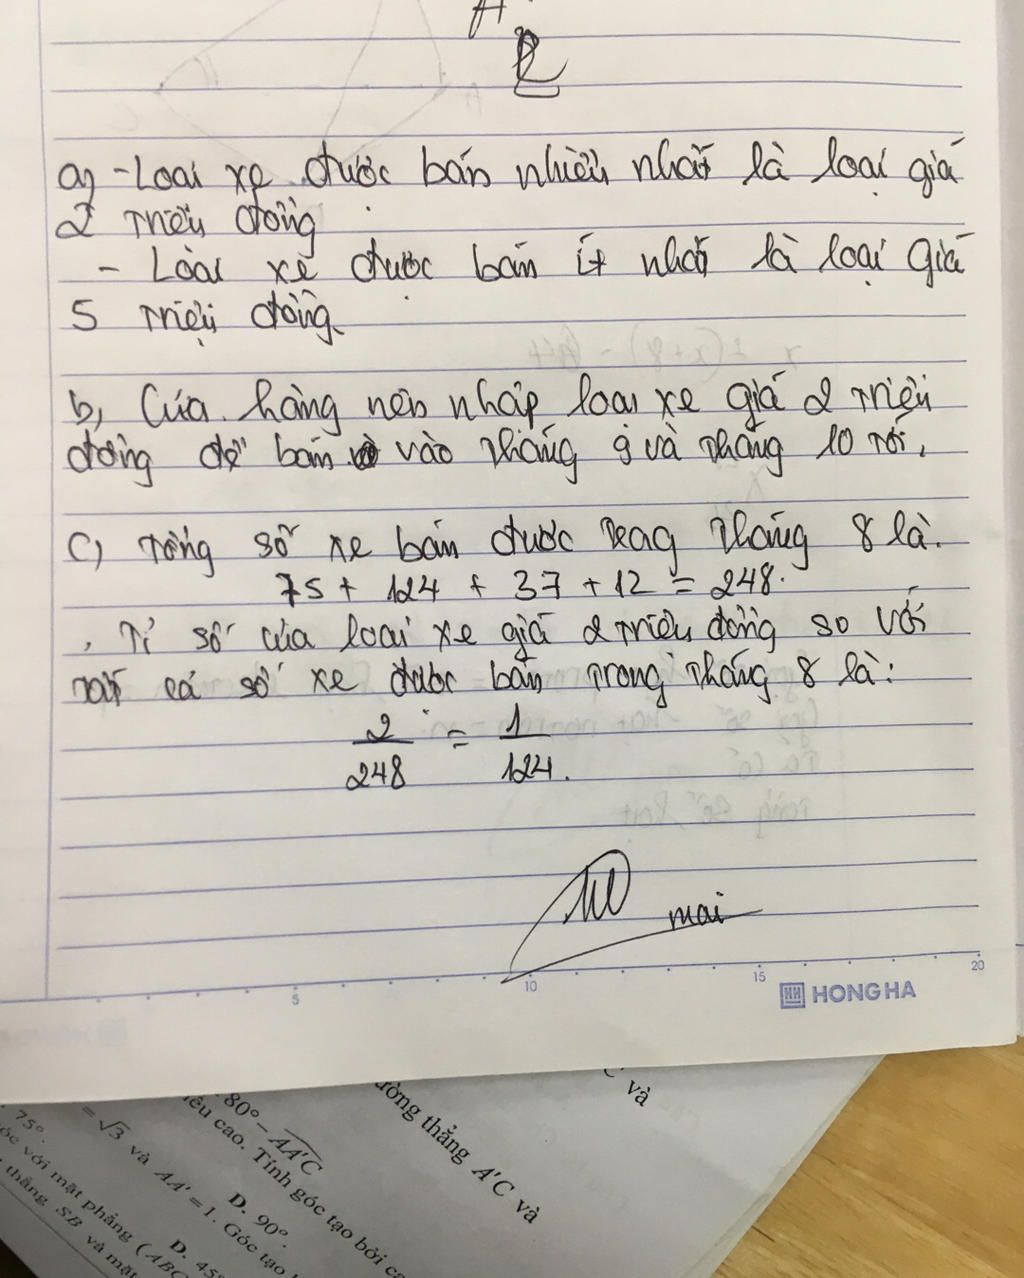 A
2
a) - Loại xe được bán nhiều nhất là loại giá
2 triệu đồng
- Loại xe được bán ít nhất là loại giá
5 triệu đồng.
b, Cửa hàng nên nhập loại xe giá 2 triệu
đồng để bán vào tháng 9 và tháng 10 tới.
c) Tổng số xe bán được trong tháng 8 là.
75 + 124 + 37 + 12 = 248.
. Tỉ số của loại xe giá 2 triệu đồng so với
tất cả số xe được bán trong tháng 8 là:
2/248 = 1/124.
mai
5 10 15 20
HONG HA
C và
ường thẳng A'C và
80° - AA'C
iều cao. Tính góc tạo bởi
D. 90°.
= √3 và AA' = 1. Góc tạo
75°.
óc với mặt phẳng (ABC
D. 45°
thẳng SB và mặt